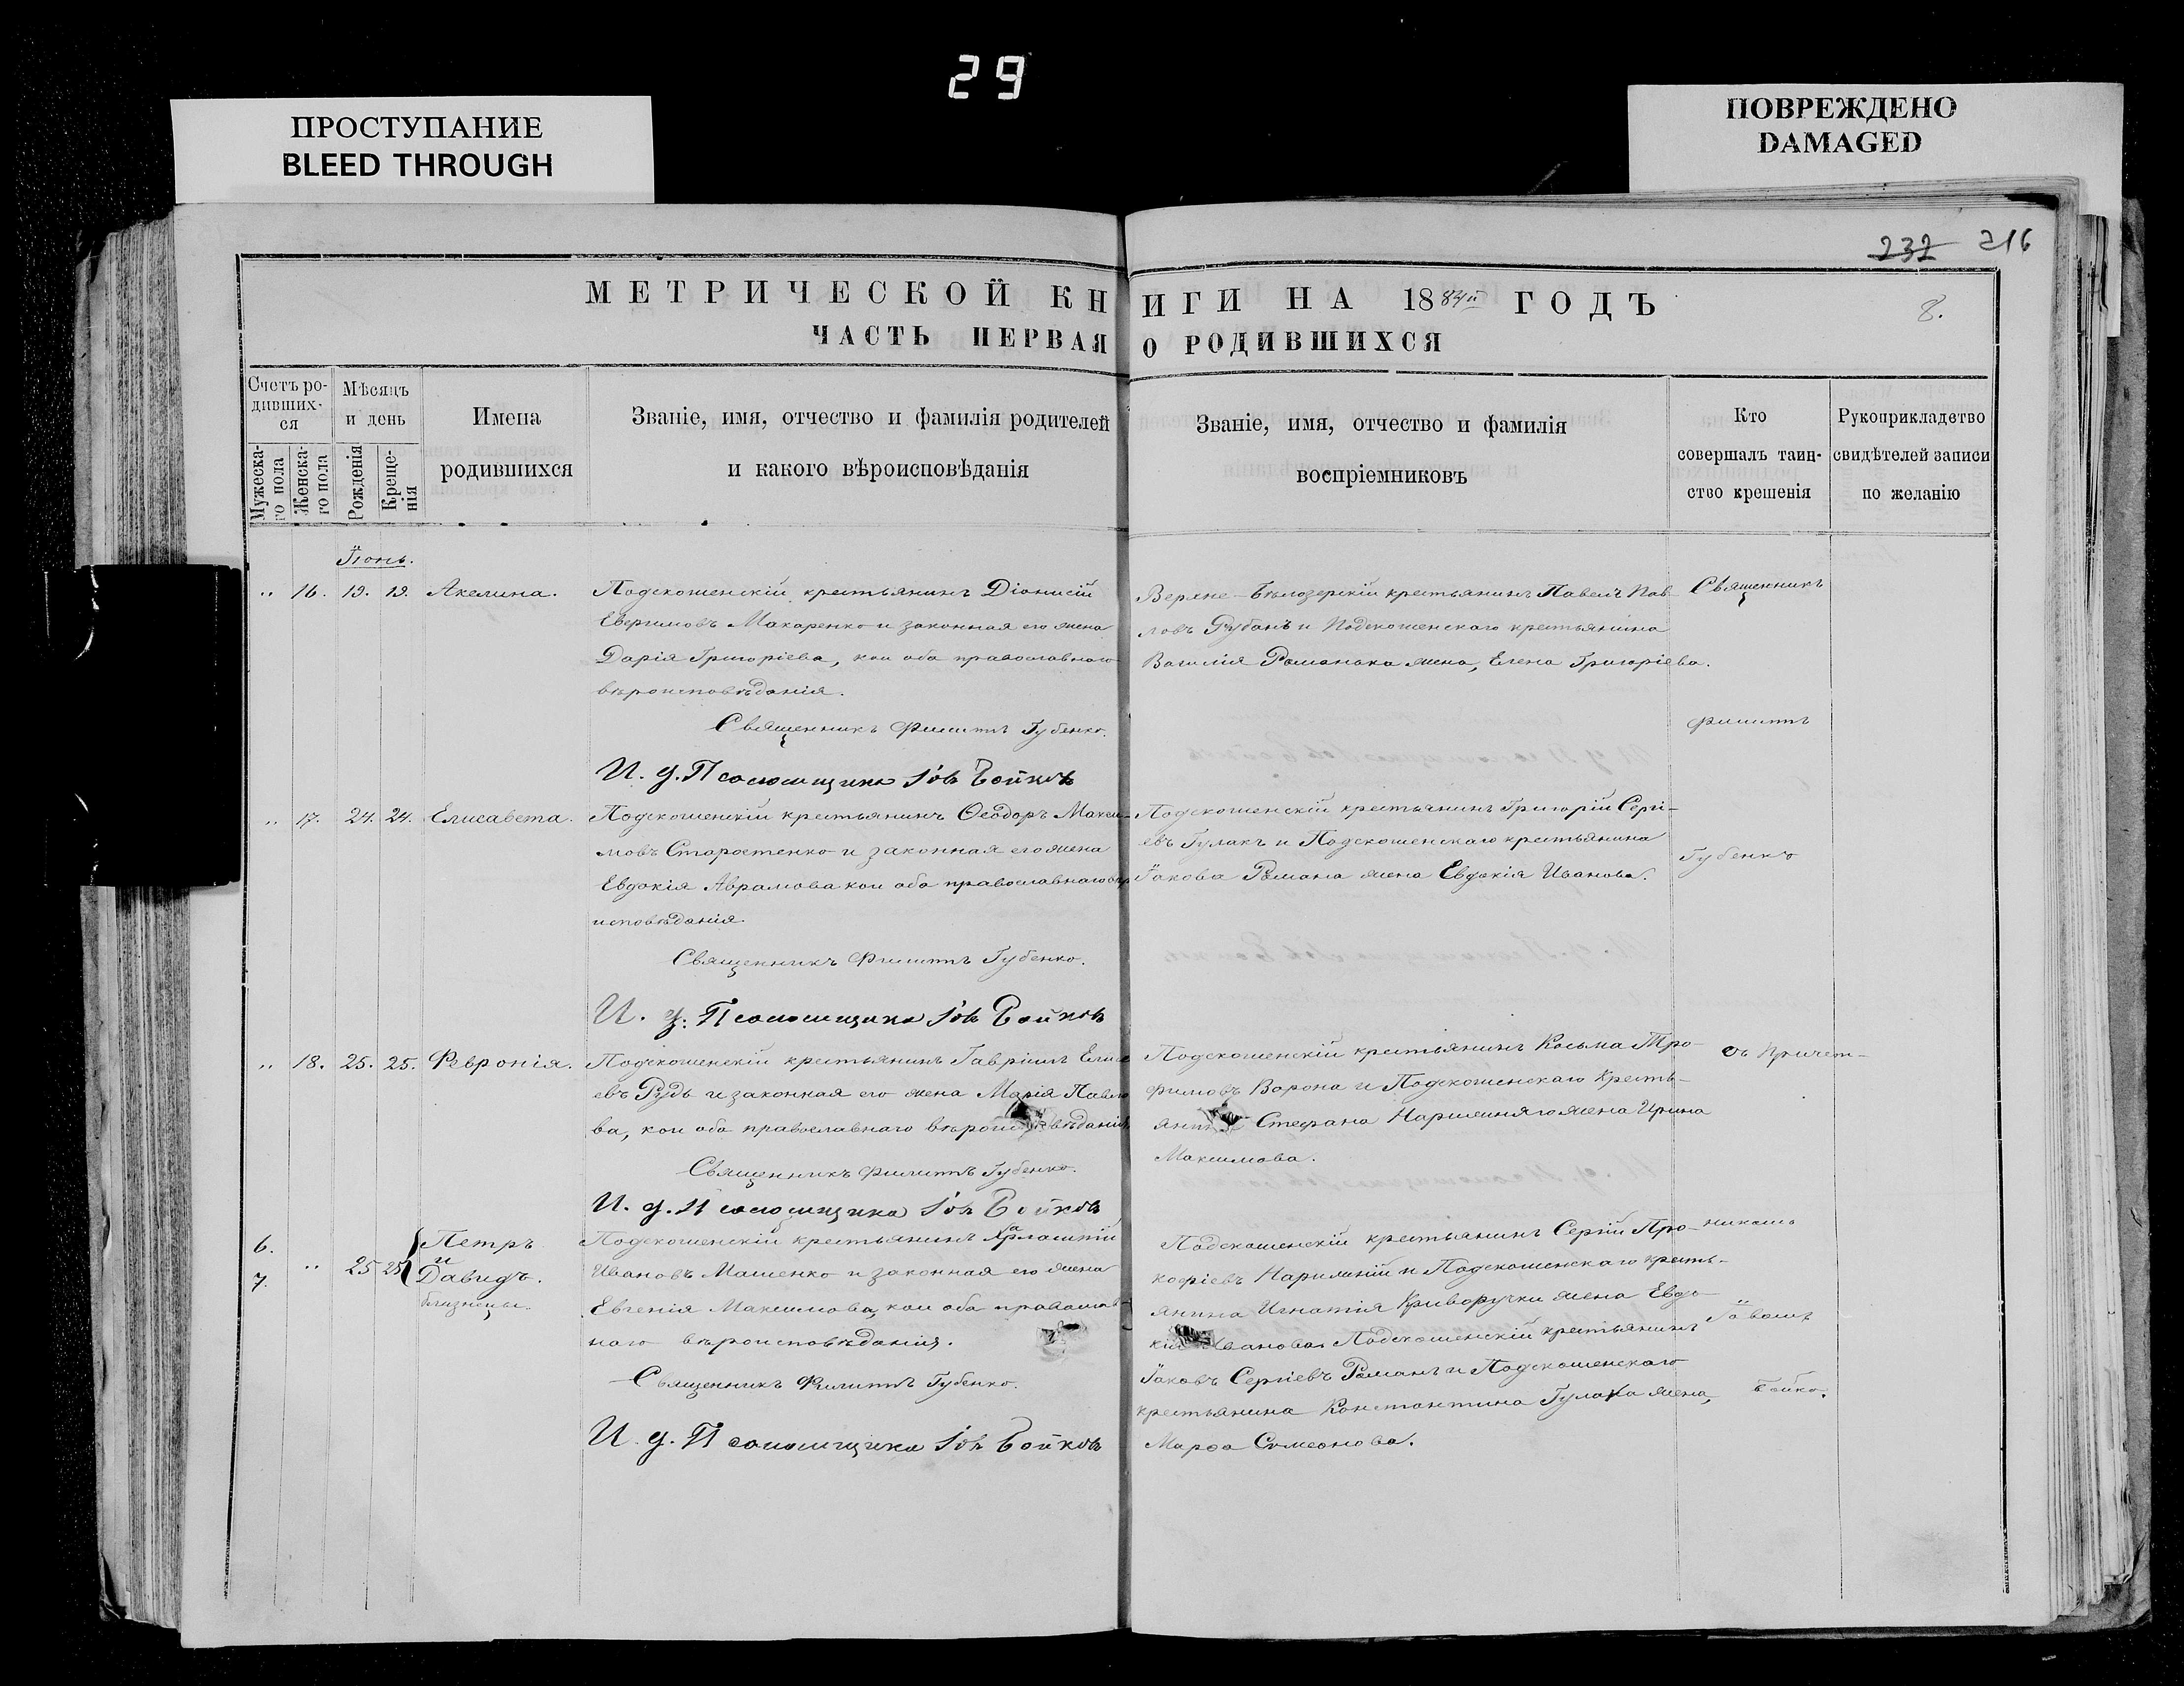 29
ПРОСТУПАНИЕ
BLEED THROUGH
ПОВРЕЖДЕНО
DAMAGED
232 216
МЕТРИЧЕСКОЙ КНИГИ НА 1884й ГОДЪ
8.
ЧАСТЬ ПЕРВАЯ О РОДИВШИХСЯ
Счетъ ро-
дивших-
ся
Мужеска-
го пола
Женска-
го пола
Мѣсяцъ
и день
Рожденія
Креще-
нія
Имена
родившихся
Званіе, имя, отчество и фамилія родителей
и какого вѣроисповѣданія
Званіе, имя, отчество и фамилія
воспріемниковъ
Кто
совершалъ таин-
ство крещенія
Рукоприкладство
свидѣтелей записи
по желанію
Іюнь.
" 16. 19. 19. Акелина.
Подскошенскій крестьянинъ Діонисій
Макаренко и законная его жена
Дарія Григоріева, кои оба православнаго
вѣроисповѣданія.
Священникъ Филиппъ Губенко.
И. д. Псаломщика Іовъ Бойковъ
Верхне-Бѣлозерскій крестьянинъ Павелъ Пав-
ловъ Рубанъ и Подскошенскаго крестьянина
Василія Романока жена, Елена Григоріева.
Священникъ
Филиппъ
" 17. 24. 24. Елисавета.
Подскошенскій крестьянинъ Ѳеодоръ Макси-
мовъ Старостенко и законная его жена
Евдокія Аврамова кои оба православнаго вѣр
исповѣданія.
Священникъ Филиппъ Губенко.
И. д. Псаломщика Іовъ Бойковъ
Подскошенскій крестьянинъ Григорій Сергі-
евъ Гулакъ и Подскошенскаго крестьянина
Іакова Романа жена Евдокія Иванова.
Губенко
" 18. 25. 25. Февронія.
Подскошенскій крестьянинъ Гавріилъ Елисе
евъ Рудь и законная его жена Марія Павло
ва, кои оба православнаго вѣроисповѣданія
Священникъ Филиппъ Губенко.
И. д. Псаломщика Іовъ Бойковъ
Подскошенскій крестьянинъ Косьма Тро-
фимовъ Ворона и Подскошенскаго кресть-
янина Стефана жена Ирина
Максимова.
съ Причет-
6.
7.
" 25 25
Петръ
и
Давидъ.
близнецы.
Подскошенскій крестьянинъ Харлампій
Ивановъ Машенко и законная его жена
Евгенія Максимова, кои оба православ-
наго вѣроисповѣданія.
Священникъ Филиппъ Губенко.
И. д. Псаломщика Іовъ Бойковъ
Подскошенскій крестьянинъ Сергій Про-
кофіевъ и Подскошенскаго кресть-
янина Игнатія Криворучки жена Евдо-
кія Иванова. Подскошенскій крестьянинъ
Іаковъ Сергіевъ Романъ и Подскошенскаго
крестьянина Константина Гулака жена,
Марѳа Симеонова.
никомъ
Іовомъ
Бойко.